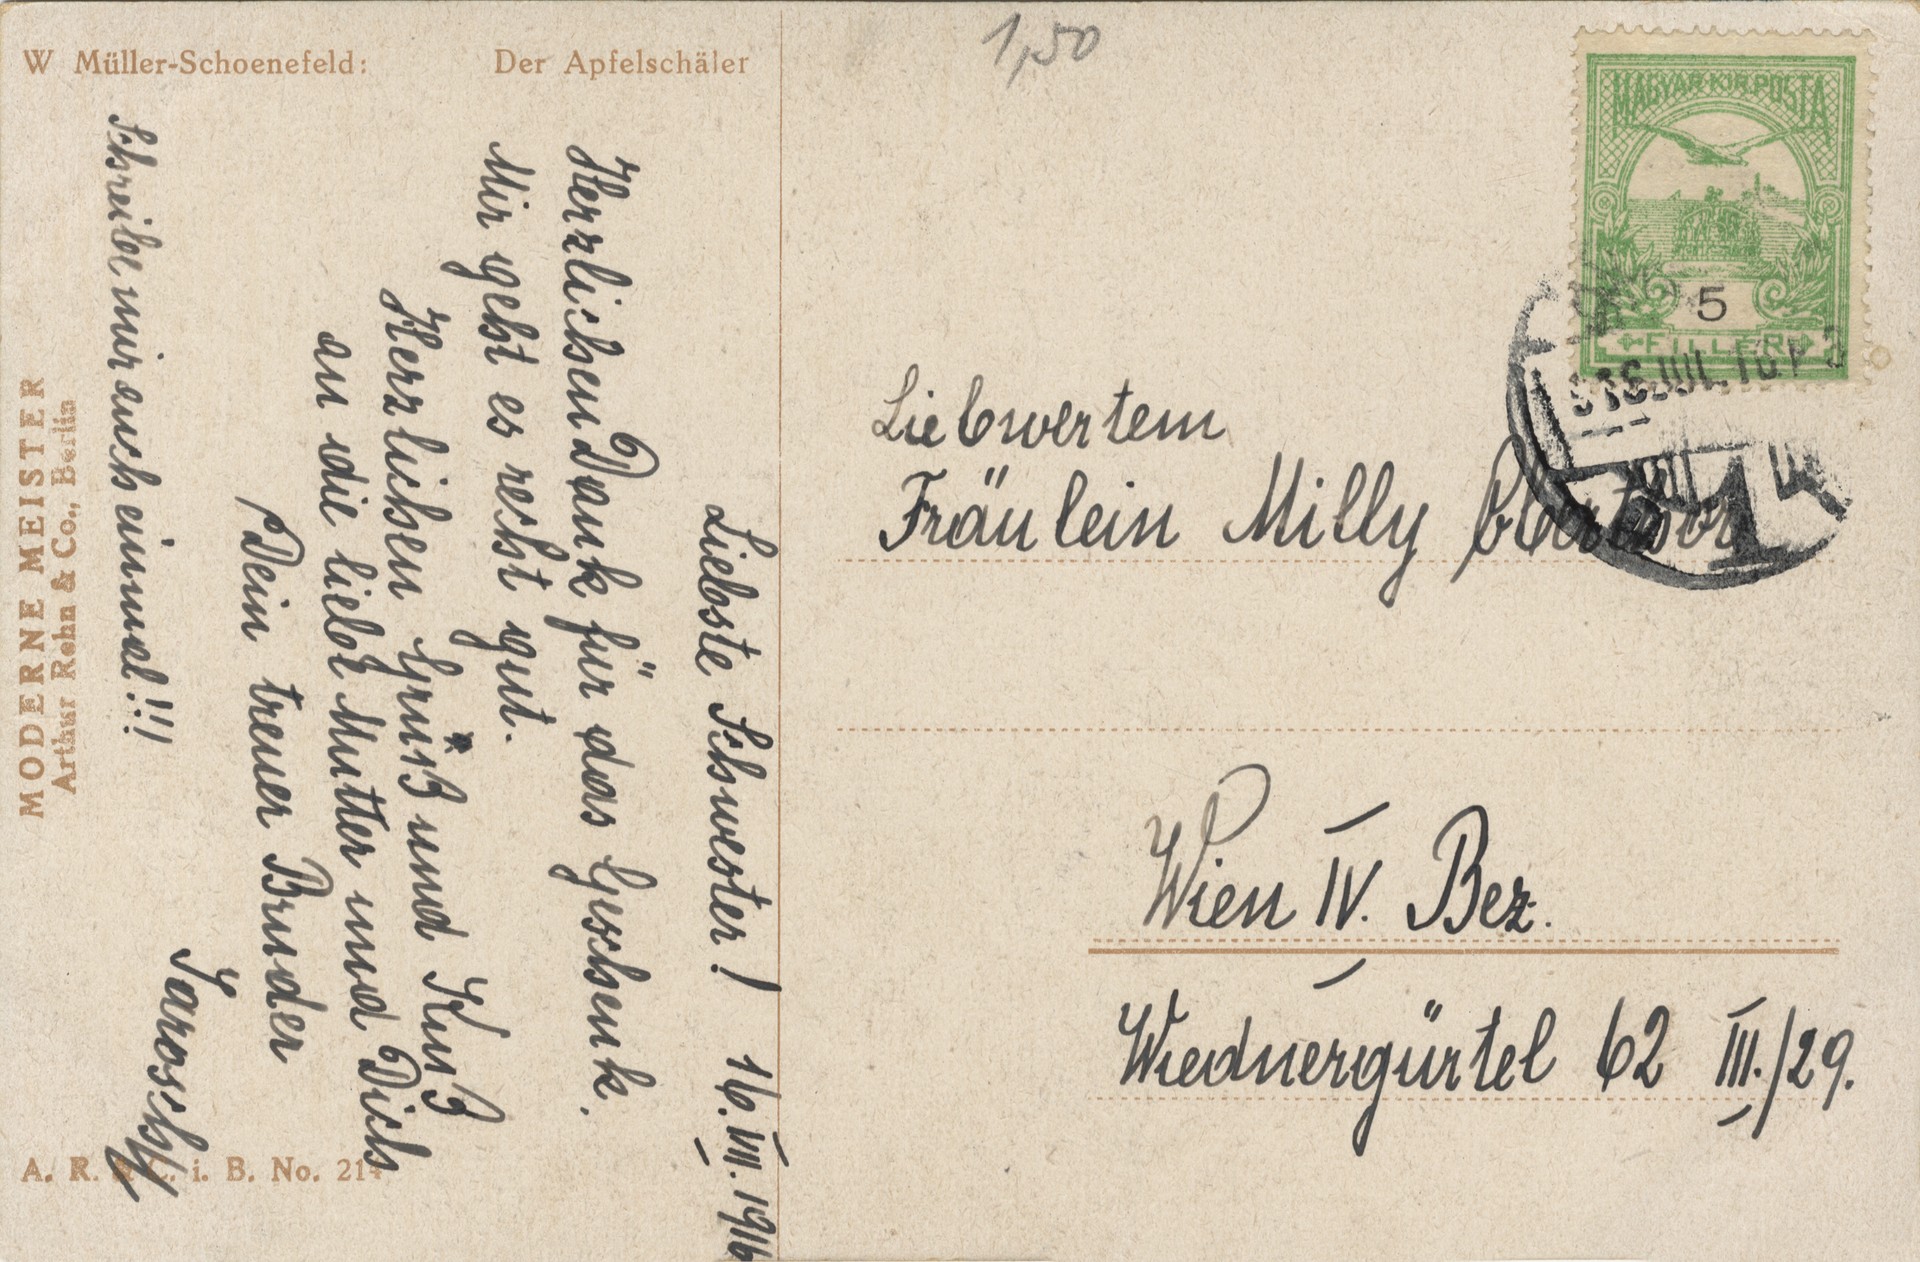 W Müller-Schoenefeld: Der Apfelschäler
MODERNE MEISTER
Arthur Rehn & Co., Berlin
A. R. & C. i. B. No. 214
Liebste Schwester! 16. VII. 1916
Herzlichen Dank für das Geschenk.
Mir geht es recht gut.
Herzlichen Gruß und Kuß
an die liebe Mutter und Dich
Dein treuer Bruder
Jarosch
Schreibe mir auch einmal!!!
1,50
MAGYAR KIR. POSTA
5
FILLER
916 JUL. 16
Liebwertem
Fräulein Milly
Wien IV. Bez.
Wiednergürtel 62 III./29.